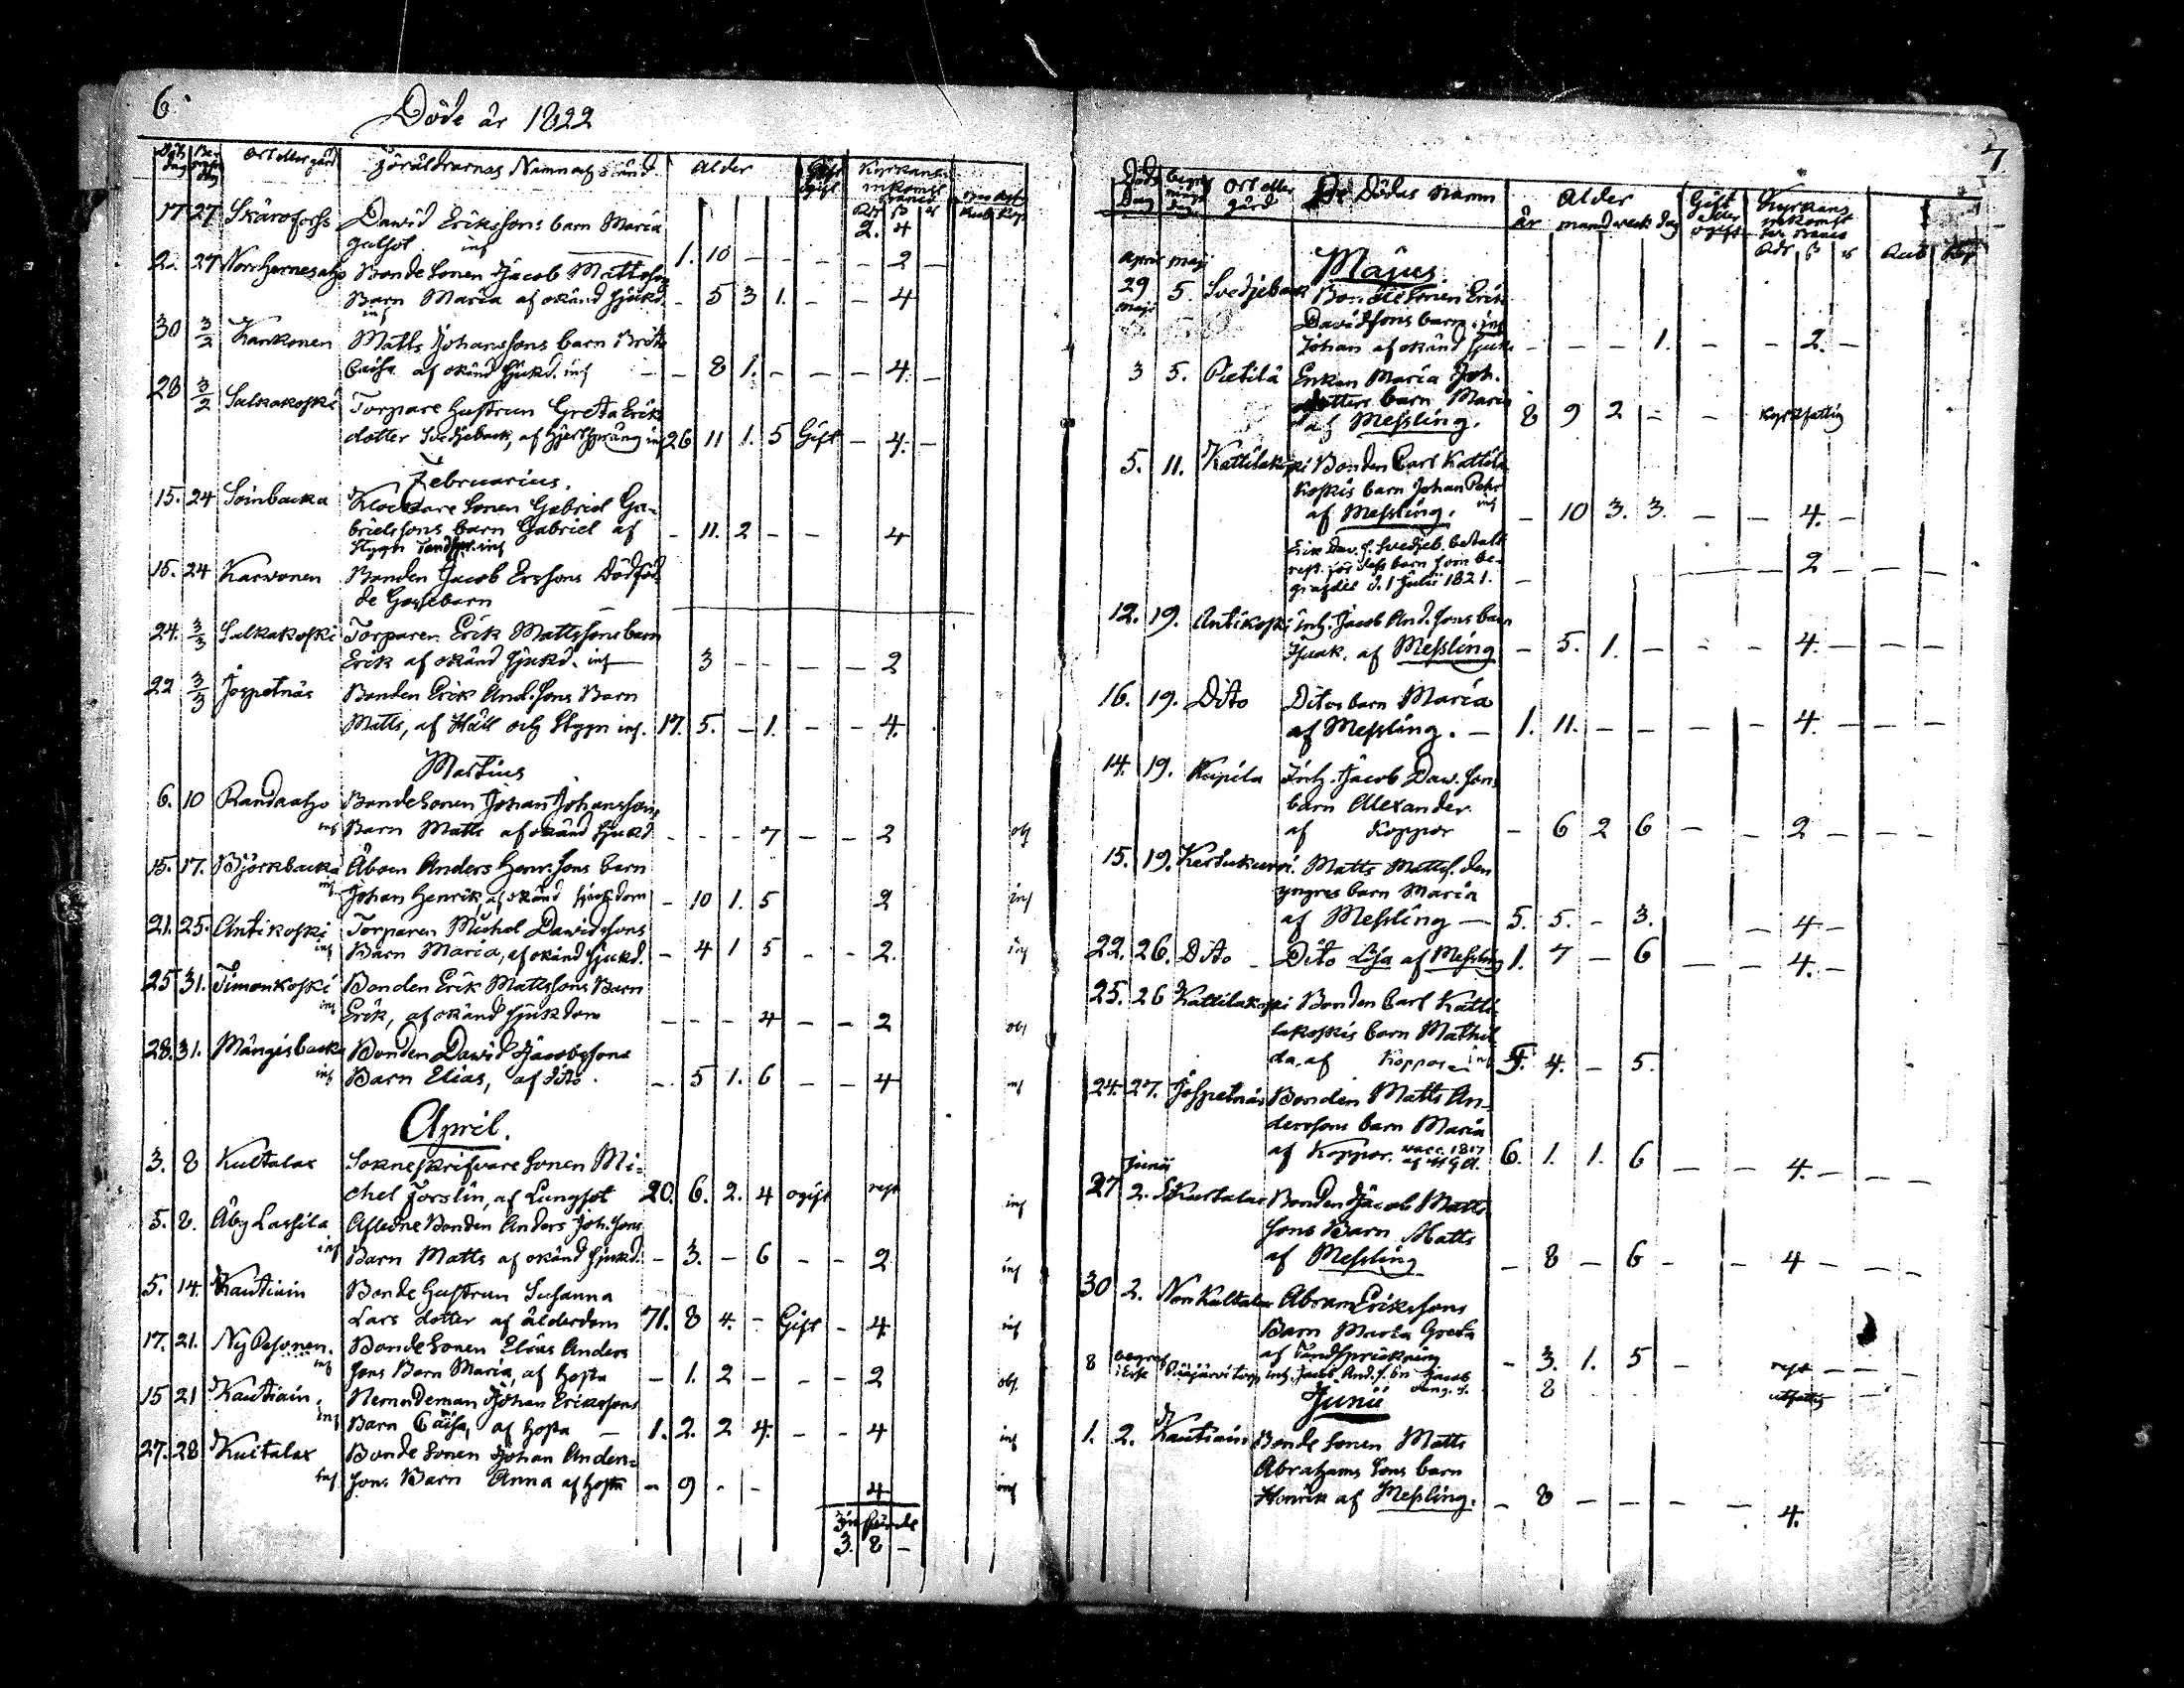 6
Döde år 1822
Ort eller gård Föräldrarnas Namn och stånd Alder Gift ogift Kyrkans inkomst Banco
17 27 Skärofors Dawid Erikssons barn Maria 2. 4
Gulsot inf 1. 10 – – – – 2 –
2. 27 Bonde Sonen Jacob Mattsson
Barn Maria af okänd sjukd. – 5 3 1. – – 4
inf
30 3/2 Kankonen Matts Johanssons barn Brita
Caisa af okänd sjukd. inf – – 8 1. – – – 4. –
28 3/2 Salkakoski Torpare Hustrun Greta Eriks
dotter Svedjeback, af inf 26 11 1. 5 Gift – 4. –
Februarius.
15. 24 Soinbacka Klockare Sonen Gabriel Ga-
brielssons barn Gabriel af – 11. 2 – – 4
Stygn inf
15. 24 Karvonen Bonden Jacob Erssons Dödföd-
de Gossebarn
24. 3/3 Salkakoski Torparen Erik Mattssons barn
Erik af okänd sjukd. inf 3 – – – – 2
22 3/3 Jospetnäs Bonden Erik And.sons Barn
Matts, af Håll och Stygn inf. 17. 5. – 1. – – 4.
Martius
6. 10 Randaaho Bonde Sonen Johan Johansson,
inf Barn Matts af okänd sjukd – – – 7 – – 2
15. 17. Björkbacka Åboen Anders Henr.sons barn
inf Johan Henrik, af okänd sjukdom – 10 1. 5 2 inf
21. 25. Antikoski Torparen Michel Dawidssons
inf Barn Maria, af okänd sjukd. – 4 1 5 – – 2. inf
25 31. Timonkoski Bonden Erik Mattssons Barn
inf Erik, af okänd sjukdom – – – 4 – – 2
28. 31. Mångisbacka Bonden Dawid Jacobssons
inf Barn Elias, af dito. – 5 1. 6 – – 4 inf
April.
3. 8 Kultalax Sokneskrifvare Sonen Mi-
chel Forslin, af Lungsot 20. 6. 2. 4 ogift rest inf
5. 8. Åby Lassila Afledne Bonden Anders Joh.sons
inf Barn Matts af okänd sjukd. – 3. – 6 – – 2 inf
5. 14. Kautiain Bonde Hustrun Susanna
Lars dotter af ålderdom 71. 8 4. – Gift – 4. inf
17. 21. Ny Pesonen. Bonde Sonen Elias Anders
inf sons Barn Maria, af hosta – 1. 2 – – – 2
15 21 Kautiain. Nemndeman Johan Erikssons
inf Barn Caisa, af hosta – 1. 2. 2 4. – – 4 inf
27. 28 Kultalax Bonde Sonen Johan Anders-
inf sons Barn Anna af hosta – 9 – – 4 inf
3. 8 –
7.
Döds Dag Ort eller gård De Dödas namn Alder Gift eller ogift Kyrkans inkomst Banco
år månad weck dag
April Maj Majus
29 5. Svedjeback Bonde Sonen Erik
Davidssons barn inf
Johan af okänd sjukd – – – 1. – – 2. –
3 5. Pietilä Enkan Maria Joh.
dotters barn Maria
af Messling. 8 9 2 – – kyrkfattig
5. 11. Kattilakoski Bonden Carl Kattila
koskis barn Johan Pehr
af Messling. inf – 10 3. 3. – – 4. –
Erik Dav. s. Svedjeb. betalt
rest. för dess barn som be-
grafdes d. 1 Julii 1821. – 2 –
12. 19. Antikoski Inh. Jacob And.sons barn
Isaak. af Messling – 5. 1. – – – 4. – – –
16. 19. Dito Ditos barn Maria
af Messling. – 1. 11. – – – – 4. – – –
14. 19. Kepila Inh. Jacob Daw.sons
barn Alexander.
af Koppor – 6 2 6 – – 2 – – –
15. 19. Matts Matts.s. den
yngres barn Maria
af Messling – 5. 5. – 3. – 4 –
22. 26. Dito – Dito Lisa af Messling 1. 7 – 6 – – 4. –
25. 26 Kattilakoski Bonden Carl Katti-
lakoskis barn Mathil-
da. af Koppor – inf 4. – 5.
24. 27. Jospetnäs Bonden Matts An-
derssons barn Maria
af Koppor. vacc. 1817 6. 1. 1. 6 – – 4. – – –
Junii
27 2. Bonden Jacob Matts
sons Barn Matts
af Messling – 8 – 6 – – 4 – – –
30 2. Norr Kultalax Abram Erikssons
Barn Maria Greta
af Tandsprickning – 3. 1. 5 – rest – –
8 Jacob And.s. Jacob 8 utfattig
Junii
1. 2. Kautiain Bonde Sonen Matts
Abrahams Sons barn
Henrik af Messling. – 8 – – – – 4.